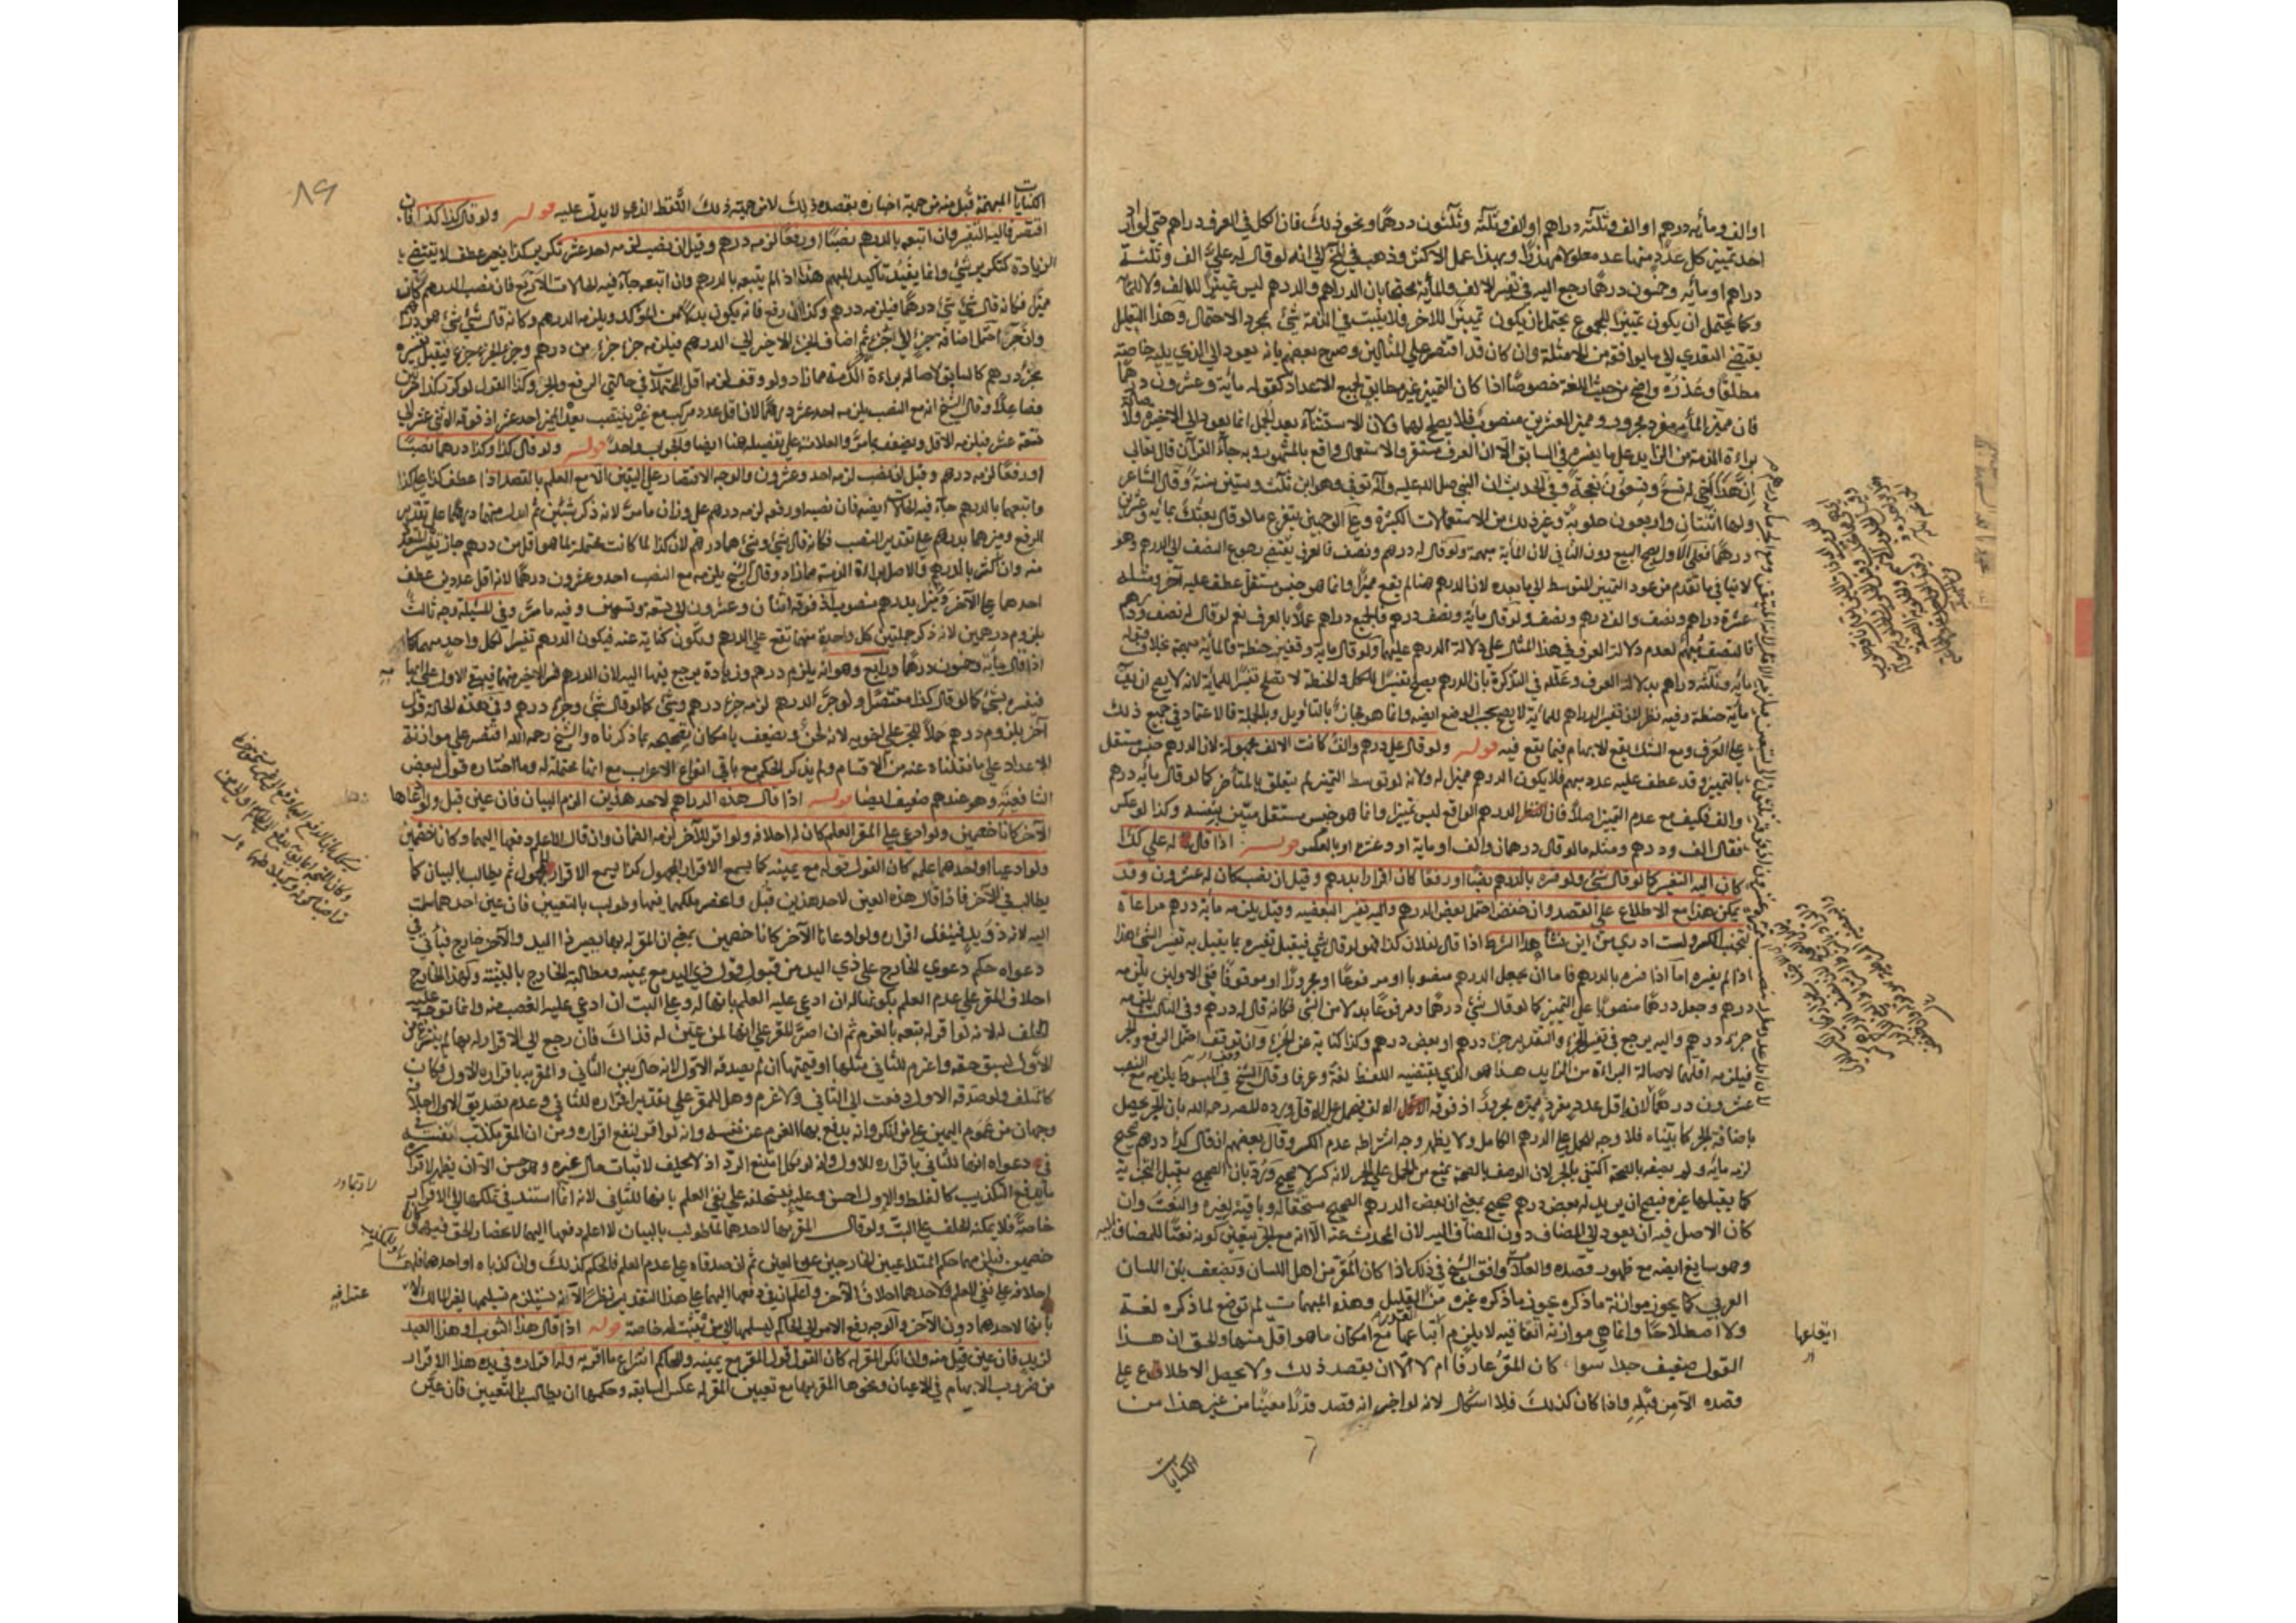 او الف ومأيه درهم او الف وثلثه دراهم او الف وثلثه وثلثون درهما ونحو ذلك فان الكل في العرف دراهم حتى لو اراد
احد تمييز كل عدد منها عد معطولا مهذرا وبهذا عمل الاكثر وذهب في المخ الي انه لو قال له علي الف وثلثة
دراهم او مايه وخمسون درهما رجع اليه في تفسير الالف والمأية محتجا بان الدراهم والدرهم ليس تمييزا للالف ولا للمايه
وكما يحتمل ان يكون تمييزا للمجموع يحتمل ان يكون تمييزا للاخر فلا يثبت في الذمة شئ بمجرد الاحتمال وهذا التعليل
يقتضي التعدي الي ما يوافقه من الامثلة وان كان قد اقتصر علي المثالين وصرح بعضهم بانه يعود الي الذي يليه خاصته
مطلقا وعذره واضح من حيث اللغة خصوصا اذا كان التمييز غير مطابق لجميع الاعداد كقوله مائية وعشرون درهما
فان مميز المأيه مفرد مجرور ومميز العشرين منصوب فلا يصلح لهما ولان الاستثناء بعد الجمل انما يعود الي الاخيره ولأصالة
براءة الذمة من الزايد علي ما يفسره في السابق الا ان العرف مستقر والاستعمال واقع بالمشهور وبه جاء القرآن قال تعالي
ان هذا اخي له تسع وتسعون نعجة وفي الحديث ان النبي صلي الله عليه وآله توفي وهو ابن ثلث وستين سنة وقال الشاعر
ولها اثنتان واربعون حلوبة وغير ذلك من الاستعمالات الكثيرة وعلي الوجهين يتفرع ما لو قال بعتك بمايه وعشرين
درهما فعلي الاول يصح البيع دون الثاني لان المأية مبهمة ولو قال له درهم ونصف فالعرف يقتضي رجوع النصف الي الدرهم وهو
لا ينافي ما تقدم من عود التمييز المتوسط الي ما بعده لان الدرهم هنا لم يقع مميزا وانما هو جنس مستقل عطف عليه آخر ومثله
عشرة دراهم ونصف والف درهم ونصف ولو قال مايه ونصف درهم فالجميع دراهم عملا بالعرف نعم لو قال له نصف ودرهم
فالنصف مبهم لعدم دلالة العرف في هذا المثال علي دلالة الدرهم عليهما ولو قال مايه وقفيز حنطة فالمأية مبهمة بخلاف قوله
مايه وثلثه دراهم بدلالة العرف وعلله في التذكرة بان الدرهم يصلح تفسيرا للكل والحنطة لا تصلح تفسيرا للمأية لانه لا يصح ان يق
مأية حنطة وفيه نظر لان تفسير الدراهم للمأية لا يصح بحسب الوضع ايضه وانما هو مجاز بالتاويل وبالجملة فالاعتماد في جميع ذلك
علي العرف ومع الشك يقع الابهام فيما يقع فيه قوله ولو قال علي درهم والف كانت الالف مجهولة لان الدرهم جنس مستقل
بالتمييز وقد عطف عليه عدد مبهم فلا يكون الدرهم مميزا له ولانه لو توسط التمييز لم يتعلق بالمتأخر كما لو قال مأيه درهم
والف فكيف مع عدم التمييز اصلا فان الدرهم الواقع ليس تمييزا وانما هو جنس مستقل متبين بنفسه وكذا لو عكس
فقال الف ودرهم ومثله ما لو قال درهمان والف او ماية او وعشره او بالعكس قوله اذا قال له علي كذا
كان اليه التفسير كما لو قال شئ ولو فسره بالدرهم نصبا او رفعا كان اقرارا بدرهم وقيل ان نصب كان له عشرون وقد
يمكن هذا مع الاطلاع علي القصد وان خفض احتمل بعض الدرهم واليه تفسير البعضيه وقيل يلزمه مأية درهم مراعاة
لتجنب الكسر ولست ادري من اين نشأ هذا الشرط اذا قال لفلان كذا فهو كما لو قال شئ فيقبل تفسيره بما يقبل به تفسير الشئ هذا
اذا لم يفسره اما اذا فسره بالدرهم فاما ان يجعل الدرهم منصوبا او مرفوعا او مجرورا او موقوفا ففي الاولين يلزمه
درهم وجعل درهما منصوبا علي التمييز كما لو قال شئ درهما ومرفوعا بدلا من الشئ فكانه قال له درهم وفي الثالث يلزمه
جزء درهم واليه يرجع في تفسير الجزء والتقدير جزء درهم او بعض درهم وكذا كناية عن الجزء وان توقف احتمل الرفع والجر
فيلزمه اقلهما لاصالة البراءة من الزايد هذا هو الذي يقتضيه اللفظ لغة وعرفا وقال الشيخ في المبسوط يلزمه مع النصب
عشرون درهما لان اقل عدد مفرد مميزه مجرد اذ فوقه الي الالف فيحمل علي الاقل ورده المصه رحمه الله بان الجر يحصل
باضافة الجزء كما بيناه فلا وجه لحمله علي الدرهم الكامل ولا يظهر وجه اشتراطه عدم الكسر وقال بعضهم ان قال كذا درهم صحيح
لزمه مأيه ولو لم يصفه بالصحة اكتفي بالجزء لان الوصف بالصحة يمنع من الحمل علي الجزء لانه كسر لا صحيح ورد بان الصحيح يقبل التجزية
كما يقبلها غيره فيصح ان يريد له بعض درهم صحيح بمعني ان بعض الدرهم الصحيح مستحق له وباقيه لغيره والنعت وان
كان الاصل فيه ان يعود الي المضاف دون المضاف اليه لان المحدث عنه الا انه مع الجر يتعين كونه نعتا للمضاف اليه
وهو سايغ ايضه مع ظهور قصده والعلامة وافق الشيخ في ذلك اذا كان المقر من اهل اللسان وتضعف بان اللسان
العربي كما يجوز موازنة ما ذكره يجوز ما ذكره غيره من القليل وهذه المبهمات لم توضع لما ذكره لغة
ولا اصطلاحا وانما هي موازنة اتفاقيه لا يلزم اتباعها مع امكان ما هو اقل منها والحق ان هذا
القول ضعيف جدا سواء كان المقر عارفا ام لا الا ان يقصد ذلك ولا يحصل الاطلاع علي
قصده الا من قبله واذا كان كذلك فلا اشكال لانه لو اخبر انه قصد قدرا معينا من غير هذا من
الكنايات
ايقاعها
٨٦
الكنايات المبهمة قبل منه من جهة اخباره بقصده ذلك لا من جهة ذلك اللفظ الذي لا يدل عليه قوله ولو قال كذا كذا فان
اقتصر فاليه التفسير وان اتبعه بالدرهم نصبا او رفعا لزمه درهم وقيل ان نصب لزمه احد عشر تكرير كذا بغير عطف لا يقتضي
الزيادة كتكرير شئ وانما يفيد تأكيد المبهم هذا اذا لم يتبعه بالدرهم وان اتبعه جآء فيه الحالات الاربع فان نصب الدرهم كان
مميزا فكانه قال شئ شئ درهما فيلزمه درهم وكذا ان رفع فانه يكون بدلا من المؤكد ويلزمه الدرهم وكانه قال شئ شئ هو درهم
وان جر احتمل اضافة جزء الي جزء ثم اضاف الجزء الاخير الي الدرهم فيلزمه جزء جزء من درهم وجزء الجزء جزء فيقبل تفسيره
بجزء درهم كالسابق لاصالة براءة الذمة مما زاد ولو وقف لزمه اقل المحتملات في حالتي الرفع والجر وكذا القول لو كرر كذا مرتين
فصاعدا وقال الشيخ انه مع النصب يلزمه احد عشر درهما لان اقل عدد مركب مع غيره ينتصب بعده المميز احد عشر اذ فوقه اثني عشر الي
تسعة عشر فيلزمه الاقل ويضعف بما مر والعلامة علي تفصيله هنا ايضا والجواب واحد قوله ولو قال كذا وكذا درهما نصبا
او رفعا لزمه درهم وقيل ان نصب لزمه احد وعشرون والوجه الاقتصار علي اليقين الا مع العلم بالقصد اذا عطف كذا علي كذا
واتبعهما بالدرهم جآء فيه الحالات ايضه فان نصبه او رفعه لزمه درهم علي وزان ما مر لانه ذكر شيئين ثم ابدل منهما درهما علي تقدير
الرفع وميزهما بدرهم علي تقدير النصب فكانه قال شئ وشئ هما درهم لان كذا لما كانت محتملة لما هو اقل من درهم جاز تفسير المتعدد
منه وان كثر بالدرهم والاصل براءة الذمة مما زاد وقال الشيخ يلزمه مع النصب احد وعشرون درهما لانه اقل عددين عطف
احدهما علي الآخر وميزا بدرهم منصوب اذ فوقه اثنان وعشرون الي تسعة وتسعين وفيه ما مر وفي المسئلة وجه ثالث
بلزوم درهمين لانه ذكر جملتين كل واحدة منهما تقع علي الدرهم وتكون كناية عنه فيكون الدرهم تفسيرا لكل واحد منهما كما
اذا قال مأية وخمسون درهما ورابع وهو انه يلزم درهم وزيادة يرجع فيها اليه لان الدرهم فسر الاخير منهما فيبقي الاول علي ابهامه
فيفسره بشئ كما لو قال كذا مقتصرا ولو جر الدرهم لزمه جزء درهم وشئ كما لو قال شئ وجزء درهم وفي هذه الحالة قول
آخر بلزوم درهم حملا للجر علي اخويه لانه لحن ويضعف بامكان تصحيحه بما ذكرناه والشيخ رحمه الله اقتصر علي موازنة
الاعداد علي ما نقلناه عنه من الاقسام ولم يذكر الحكم مع باقي انواع الاعراب مع انها محتملة له وما اختاره قول لبعض
الشافعية وهو عندهم ضعيف ايضا قوله اذا قال هذه الدراهم لاحد هذين الزم البيان فان عين قبل ولو ادعاها
الآخر كانا خصمين ولو ادعي علي المقر العلم كان له احلافه ولو اقر للآخر لزمه الضمان وان قال لا اعلم دفعها اليهما وكانا خصمين
ولو ادعيا او احدهما علمه كان القول قوله مع يمينه كما يسمع الاقرار المجهول كذا يسمع الاقرار للمجهول ثم يطالب بالبيان كما
يطالب في الآخر فاذا قال هذه العين لاحد هذين قبل وانحصر ملكها فيهما وطولب بالتعيين فان عين احدهما سلمت
اليه لانه ذو يد فينفذ اقراره ولو ادعاها الآخر كانا خصمين بمعني ان المقر له بها يصير ذا اليد والآخر خارج فيأتي في
دعواه حكم دعوي الخارج علي ذي اليد من قبول قول ذي اليد مع يمينه ومطالبة الخارج بالبينة ولهذا الخارج
احلاف المقر علي عدم العلم بكونها له ان ادعي عليه العلم بانها له وعلي البت ان ادعي عليه الغصب منه وانما توجه عليه
الحلف له لانه لو اقر له تبعه بالغرم ثم ان اصر المقر علي انها لمن عين له فذاك فان رجع الي الاقرار له بها لم ينتزع من
الاول لسبق حقه واغرم للثاني مثلها او قيمتها ان لم يصدقه الاول لانه حال بين الثاني والمقر به باقراره للاول فكان
كالمتلف ولو صدقه الاول دفعت الي الثاني ولا غرم وهل للمقر علي تقدير اقراره للثاني وعدم تصديق الاول احلافه
وجهان من عموم اليمين علي من انكر وانه يدفع بها الغرم عن نفسه وانه لو اقر لنفع اقراره ومن ان المقر مكذب لنفسه
في دعواه انها للثاني باقراره للاول وانه لو نكل امتنع الرد اذ لا يحلف لاثبات مال غيره وهو حسن الا ان يظهر لاقراره
ما يدفع التكذيب كالغلط والاول احسن وعليه يستحلفه علي نفي العلم بانها للثاني لانه انما استند في تملكها الي الاقرار
خاصة فلا يمكنه الحلف علي البت ولو قال المقر بها لاحدهما لما طولب بالبيان لا اعلم دفعها اليهما لانحصار الحق فيهما وكانا
خصمين فيلزمهما حكم المتداعيين الخارجين علي العين ثم ان صدقاه علي عدم العلم فالحكم كذلك وان كذباه او احدهما فلهما
احلافه علي نفي العلم ولاحدهما احلاف الآخر
بانها لاحدهما دون الآخر والوجه رفع الامر الي الحاكم ليسلمها الي من تثبت له خاصة قوله اذا قال هذا الثوب او هذا العبد
لزيد فان عين قبل منه وان انكر المقر له كان القول قول المقر مع يمينه وللحاكم انتزاع ما اقر به وله اقراره في يده هذا الاقرار
من ضروب الابهام في الاعيان ونحوها المقر بها مع تعيين المقر له عكس السابقه وحكمها ان يطالب بالتعيين فان عين